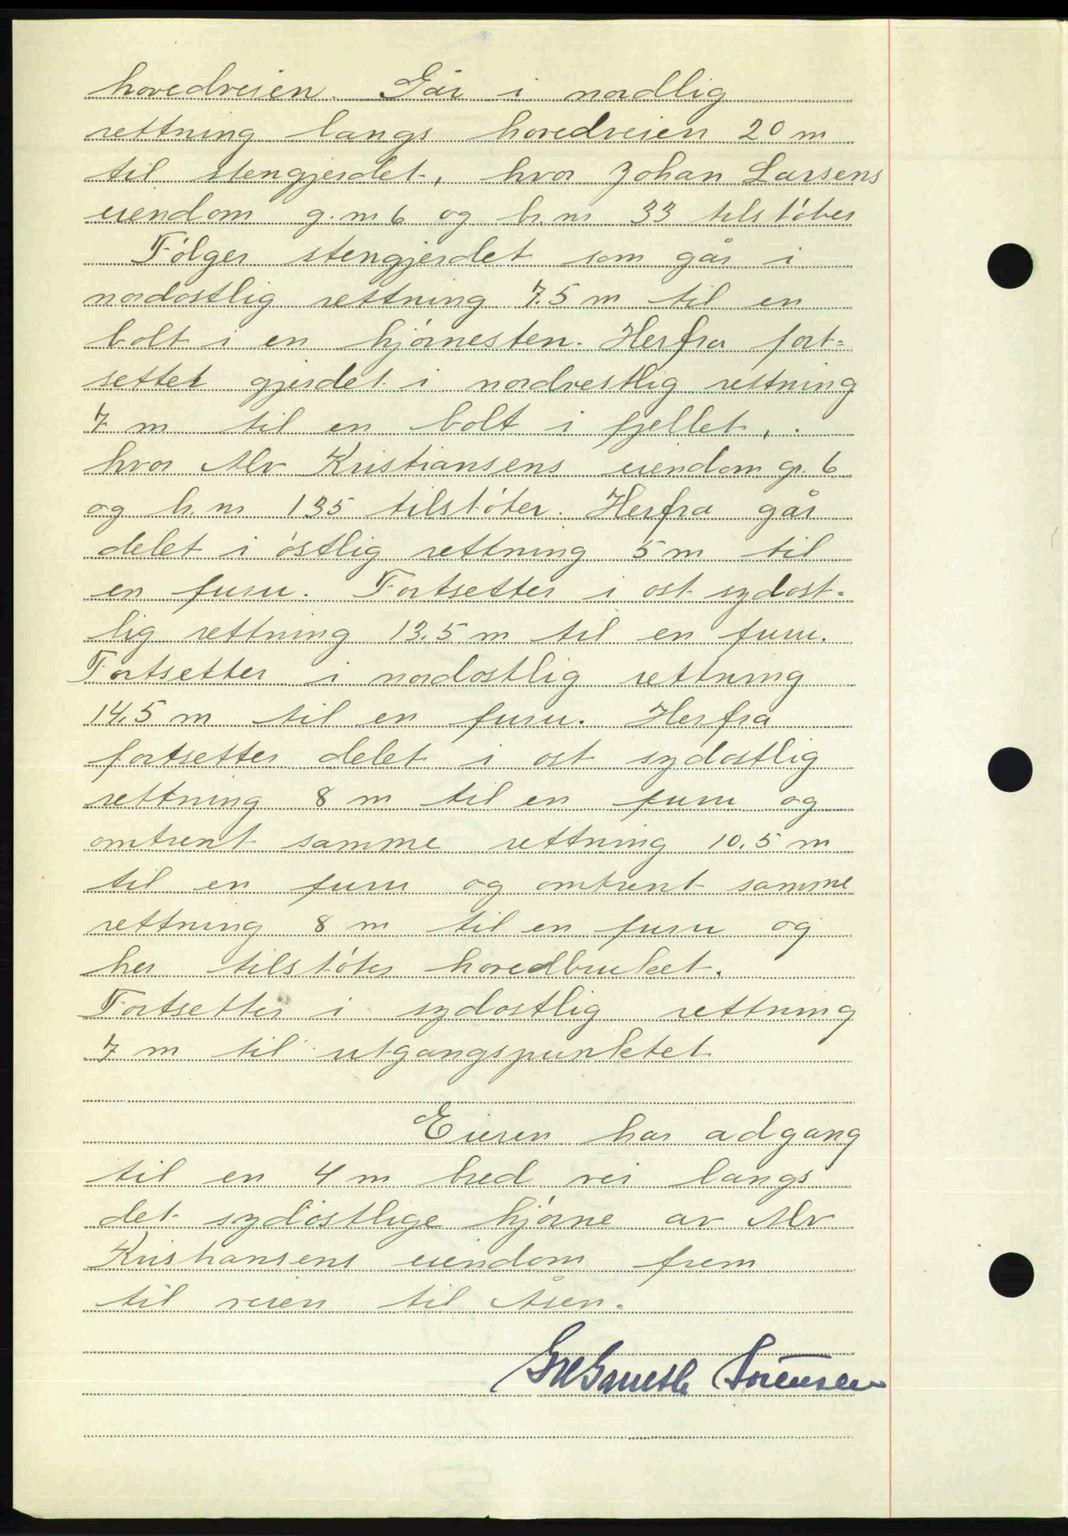 hovedveien. Går i nordlig
rettning langs hovedveien 20 m
til stengjerdet, hvor Johan Larsens
eiendom g.nr 6 og b.nr 33 tilstöter
Fölger stengjerdet som går i
nordostlig rettning 7.5 m til en
bolt i en hjörnesten. Herfra fort-
setter gjerdet i nordvestlig rettning
7 m til en bolt i fjellet,
hvor Alv Kristiansens eiendom gr. 6
og b.nr 135 tilstöter. Herfra går
delet i östlig rettning 5 m til
en furu. Fortsetter i ost sydost-
lig rettning 13.5 m til en furu.
Fortsetter i nordostlig rettning
14.5 m til en furu. Herfra
fortsetter delet i ost sydostlig
rettning 8 m til en furu og
omtrent samme rettning 10.5 m
til en furu og omtrent samme
rettning 8 m til en furu og
her tilstöter hovedbruket.
Fortsetter i sydostlig rettning
7 m til utgangspunktet
Eieren har adgang
til en 4 m bred vei langs
det sydöstlige hjörne av Alv
Kristiansens eiendom frem
til veien til Åsen.
Sörensen